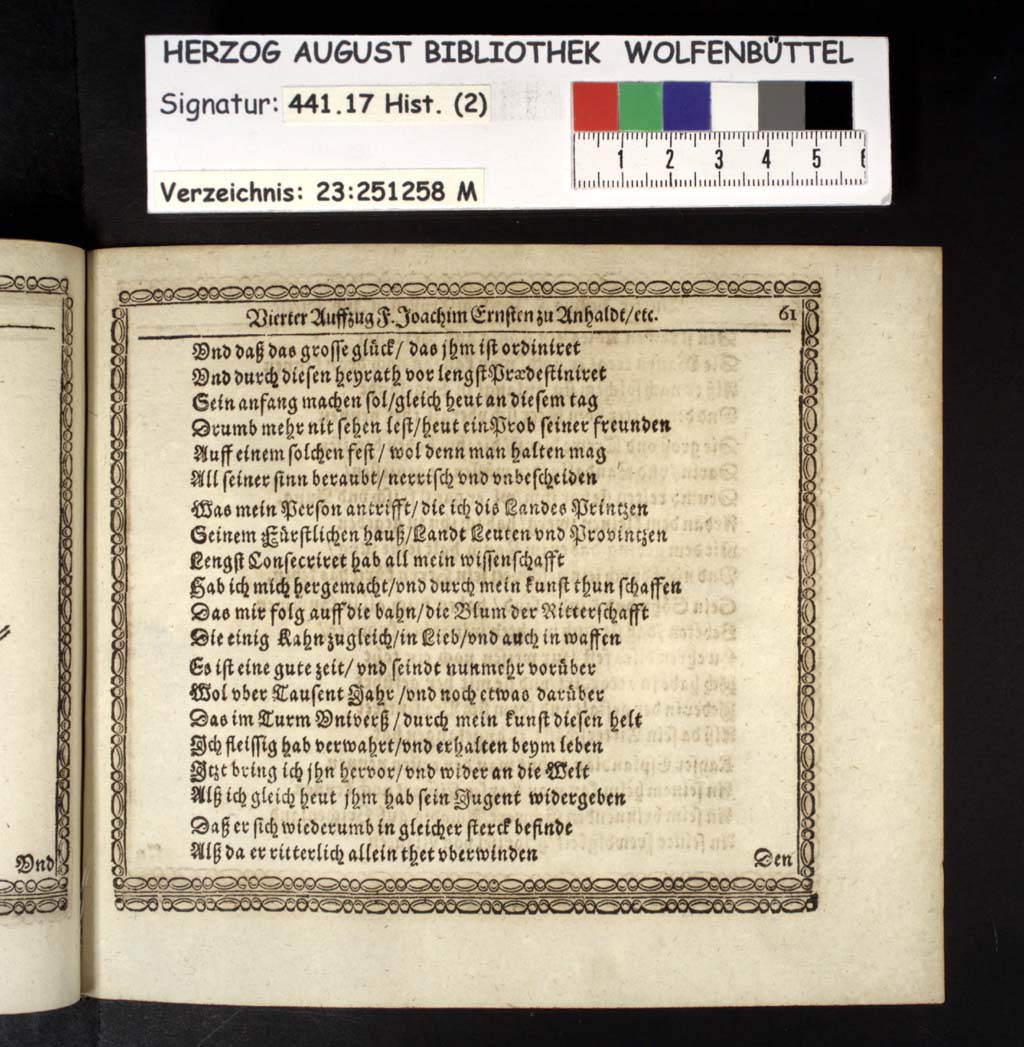 HERZOG AUGUST BIBLIOTHEK WOLFENBÜTTEL
Signatur: 441.17 Hist. (2)
1 2 3 4 5 6
Verzeichnis: 23:251258 M
Vnd
Vierter Auffzug F. Joachim Ernsten zu Anhaldt/etc. 61
Vnd daß das grosse glück/ das jhm ist ordiniret
Vnd durch diesen heyrath vor lengst Prædestiniret
Sein anfang machen sol/gleich heut an diesem tag
Drumb mehr nit sehen lest/heut ein Prob seiner freunden
Auff einem solchen fest/ wol denn man halten mag
All seiner sinn beraubt/ nerrisch vnd vnbescheiden
Was mein Person antrifft/die ich dis Landes Printzen
Seinem Fürstlichen hauß/Landt Leuten vnd Provintzen
Lengst Consecriret hab all mein wissenschafft
Hab ich mich hergemacht/vnd durch mein kunst thun schaffen
Das mir folg auff die bahn/die Blum der Ritterschafft
Die einig Kahn zugleich/in Lieb/vnd auch in waffen
Es ist eine gute zeit/ vnd seindt nunmehr vorüber
Wol vber Tausent Jahr/vnd noch etwas darüber
Das im Turm Vniverß/durch mein kunst diesen helt
Ich fleissig hab verwahrt/vnd erhalten beym leben
Itzt bring ich jhn hervor/vnd wider an die Welt
Alß ich gleich heut jhm hab sein Jugent widergeben
Daß er sich wiederumb in gleicher sterck befinde
Alß da er ritterlich allein thet vberwinden
Den